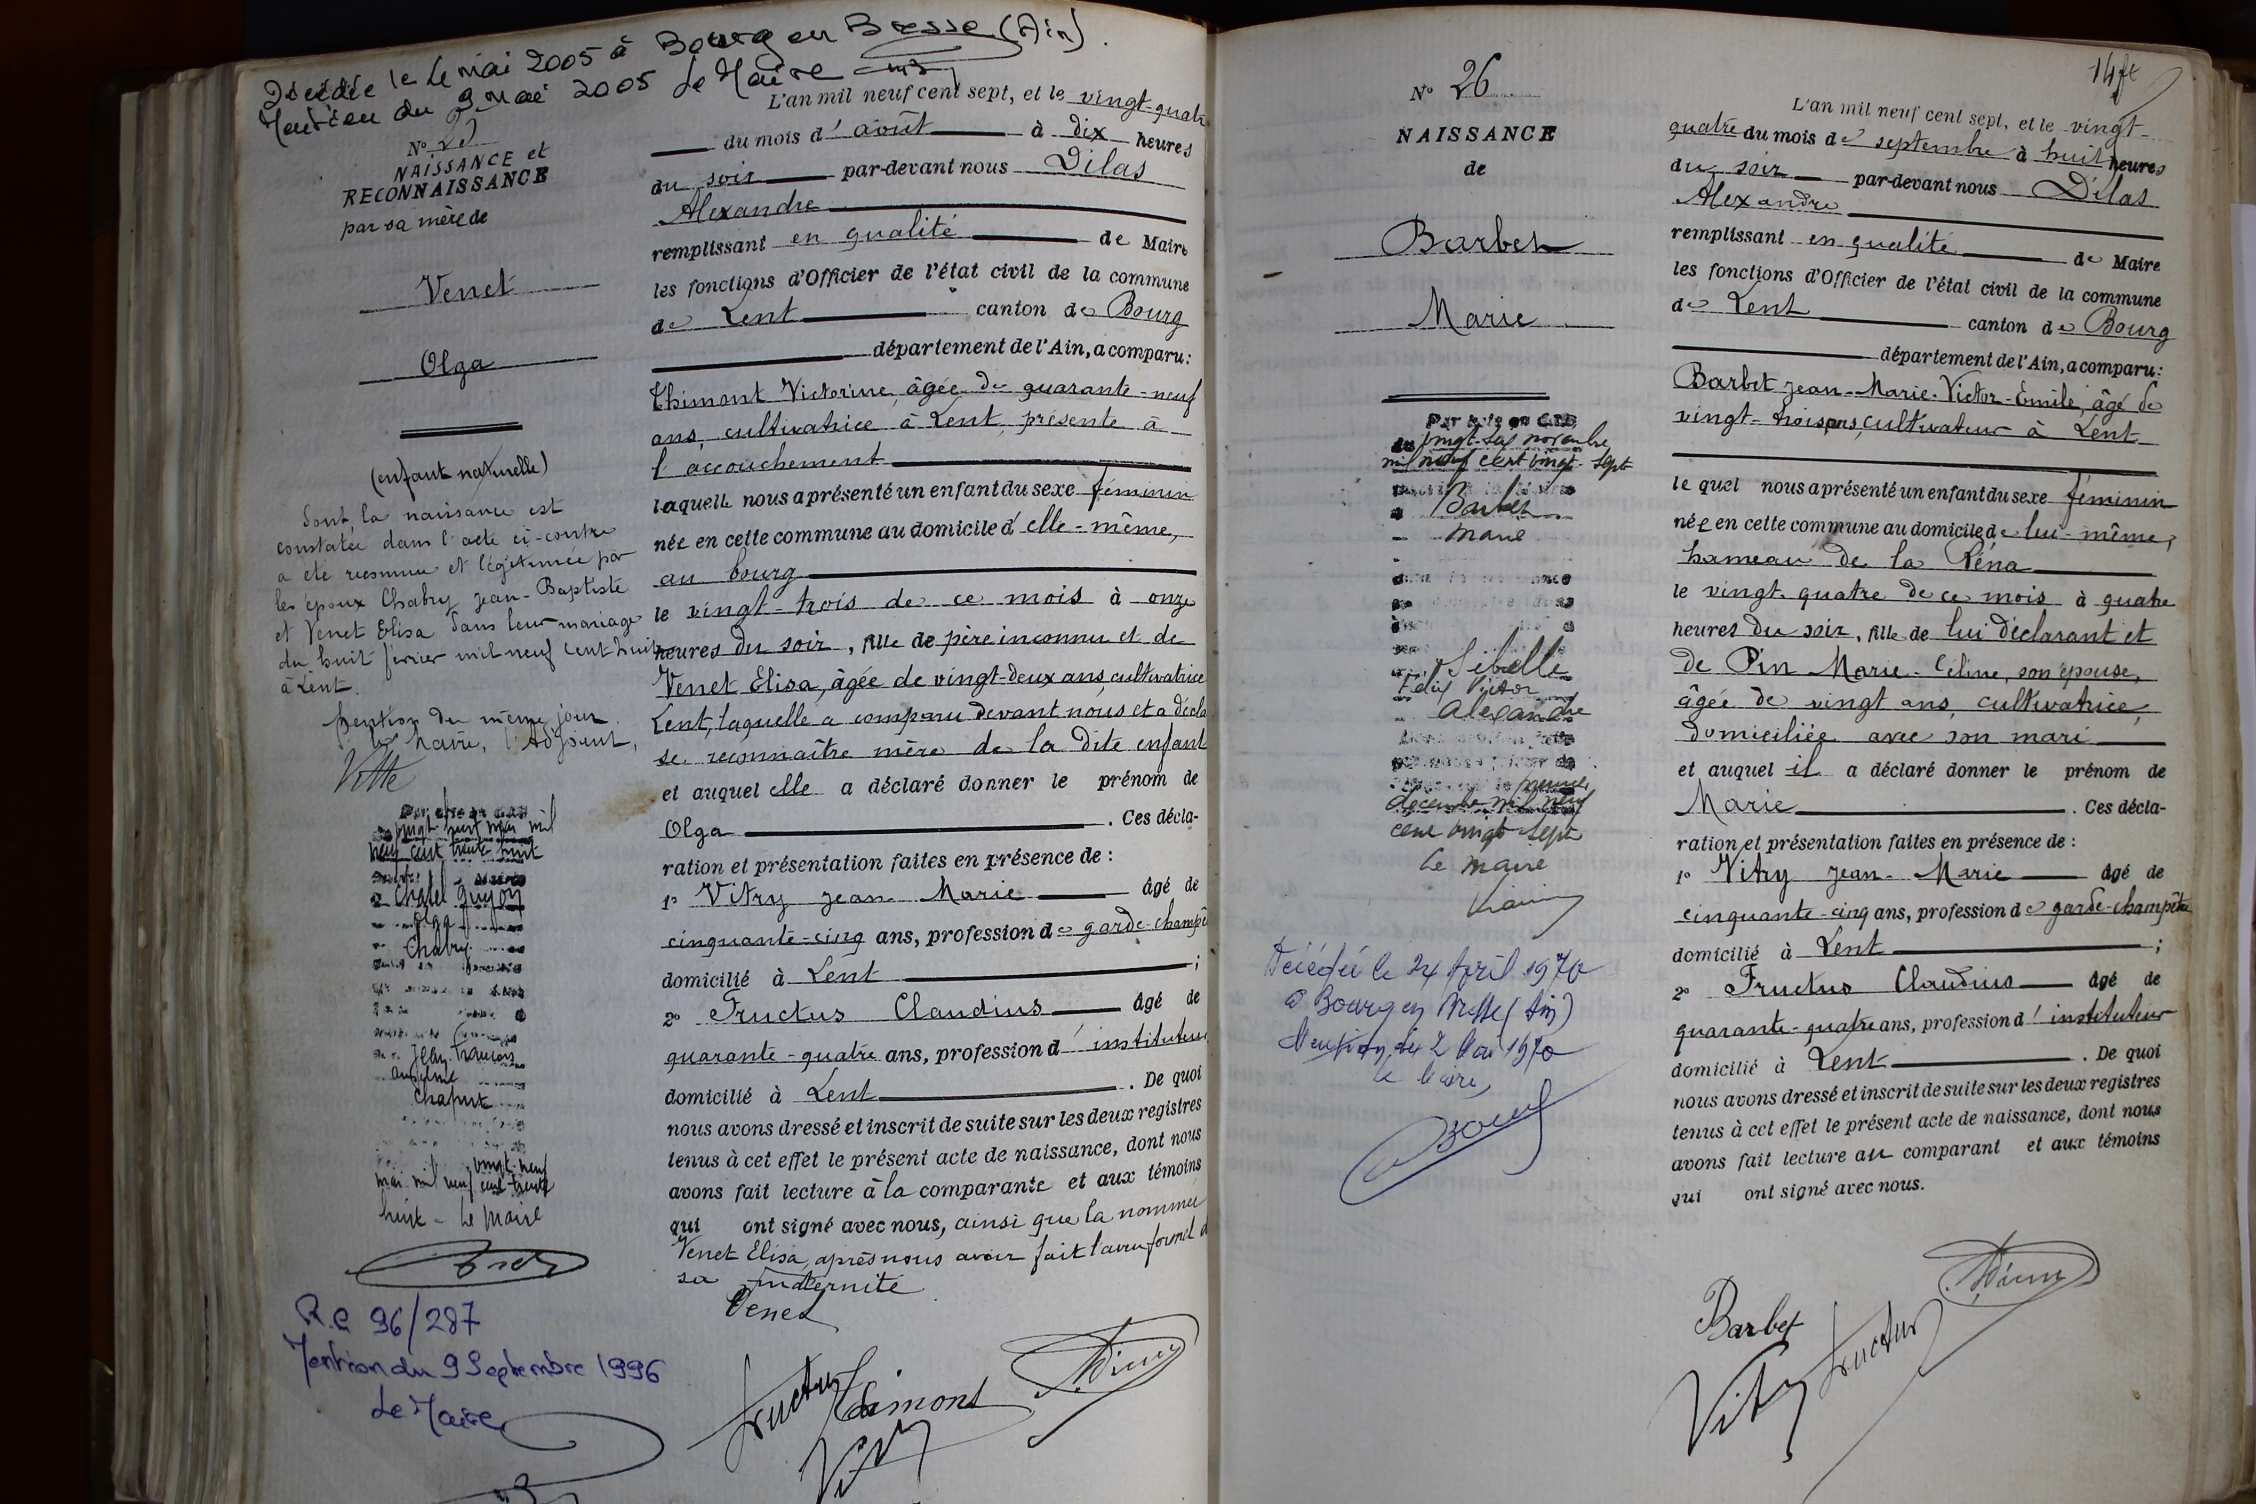 Décédée le 4 mai 2005 à Bourg en Bresse (Ain).
Mention du 9 Mai 2005 Le Maire
NAISSANCE et
RECONNAISSANCE
par sa mère de
Venet
Olga
(enfant naturelle)
dont la naissance est
constatée dans l'acte ci-contre
a été reconnue et légitimée par
les époux Chabry Jean-Baptiste
et Venet Elisa dans leur mariage
du huit février mil neuf cent huit
à Lent.
Mention du même jour.
Le Maire, l'Adjoint,
vingt-huit mai mil
neuf cent trente huit
Chatel Guyon
Olga
Chabry
Jean-François
Anselme
vingt-neuf
mai mil neuf cent trente
huit - Le Maire
R.C 96/287
Mention du 9 Septembre 1996
Le Maire
L'an mil neuf cent sept, et le vingt-quatre
du mois d'août à dix heures
du soir par-devant nous Dilas
Alexandre
remplissant en qualité de Maire
les fonctions d'Officier de l'état civil de la commune
de Lent canton de Bourg
département de l'Ain, a comparu:
Thimont Victorine, âgée de quarante-neuf
ans, cultivatrice à Lent, présente à
l'accouchement
laquelle nous a présenté un enfant du sexe féminin
née en cette commune au domicile d'elle-même,
au bourg
le vingt-trois de ce mois à onze
heures du soir, fille de père inconnu et de
Venet Elisa, âgée de vingt-deux ans, cultivatrice
Lent, laquelle a comparu devant nous et a décla
se reconnaître mère de la dite enfant
et auquel elle a déclaré donner le prénom de
Olga . Ces décla-
ration et présentation faites en présence de :
1º Vitry Jean-Marie âgé de
cinquante-cinq ans, profession de garde-champê
domicilié à Lent ;
2º Fructus Claudius âgé de
quarante-quatre ans, profession d'instituteur
domicilié à Lent . De quoi
nous avons dressé et inscrit de suite sur les deux registres
tenus à cet effet le présent acte de naissance, dont nous
avons fait lecture à la comparante et aux témoins
qui ont signé avec nous, ainsi que la nommée
Venet Elisa, après nous avoir fait l'aveu formel d
sa maternité
Venet
Fructus Thimont
Vitry
Nº 26
NAISSANCE
de
Barbet
Marie
Par acte en
du vingt-six novembre
mil neuf cent vingt-sept
Barbet
Marie
Sibelle
Félix Victor
Alexandre
premier
décembre mil neuf
cent vingt sept
Le Maire
Décédée le 24 Avril 1970
à Bourg en Bresse (Ain)
Mention du 2 Mai 1970
Le Maire,
L'an mil neuf cent sept, et le vingt-
quatre du mois de septembre à huit heures
du soir par-devant nous Dilas
Alexandre
remplissant en qualité de Maire
les fonctions d'Officier de l'état civil de la commune
de Lent canton de Bourg
département de l'Ain, a comparu:
Barbet Jean-Marie-Victor-Emile, âgé de
vingt-trois ans, cultivateur à Lent
lequel nous a présenté un enfant du sexe féminin
née en cette commune au domicile de lui-même,
hameau de la Réna
le vingt-quatre de ce mois à quatre
heures du soir, fille de lui déclarant et
de Pin Marie-Céline, son épouse,
âgée de vingt ans, cultivatrice,
domiciliée avec son mari
et auquel il a déclaré donner le prénom de
Marie . Ces décla-
ration et présentation faites en présence de :
1º Vitry Jean-Marie âgé de
cinquante-cinq ans, profession de garde-champêtre
domicilié à Lent ;
2º Fructus Claudius âgé de
quarante-quatre ans, profession d'instituteur
domicilié à Lent . De quoi
nous avons dressé et inscrit de suite sur les deux registres
tenus à cet effet le présent acte de naissance, dont nous
avons fait lecture au comparant et aux témoins
qui ont signé avec nous.
Barbet Fructus
Vitry